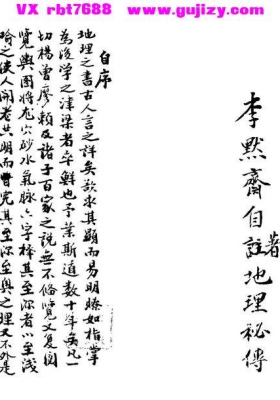 VX  rbt7688   www.gujizy.com
李默齋自註地理秘傳
著
自序
地理之書古人言之詳矣欲求其顯而易明瞭如指掌
為後學之津梁者卒鮮也予業斯道數十年矣凡一
切楊曾廖賴及諸子百家之說無不備覽又复周
覽輿圖將龙穴砂水氣脉六字釋其至深者以至淺
喻之使人閱者共明而曹究其至深至奥之理又不外是